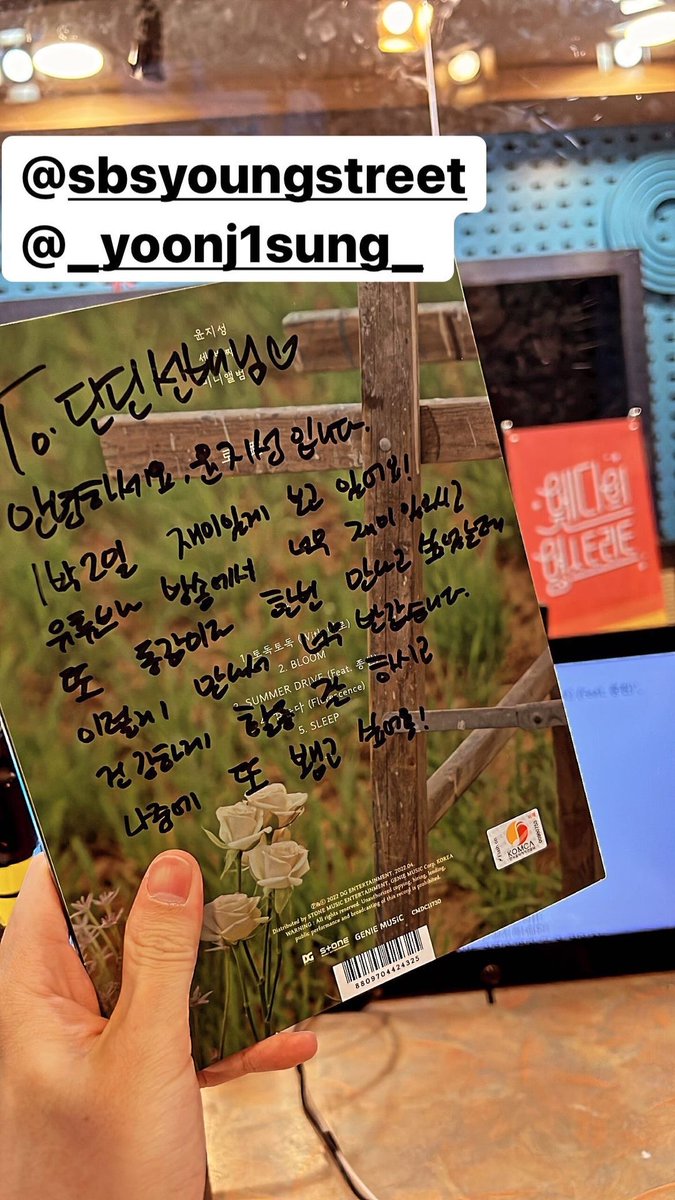 @sbsyoungstreet
@_yoonj1sung_
윤지성
미니앨범
To. 딘딘 선배님♡
안녕하세요, 윤지성입니다.
1박2일 재미있게 보고 있어요!
유튜브나 방송에서 너무 재미있으시고
또 동갑이라 한번 만나고 싶었는데
이렇게 만나서 너무 반갑습니다.
건강하게 활동 잘 하시고
나중에 또 뵙고 싶어요!
2. BLOOM
3. SUMMER DRIVE (Feat.
5. SLEEP
KOMCA
℗&© 2022 DG ENTERTAINMENT, 2022.04.
Distributed by STONE MUSIC ENTERTAINMENT, GENIE MUSIC Corp. KOREA
WARNING : All rights reserved. Unauthorized copying, hiring, lending,
public performance and broadcasting of this record is prohibited.
DG stone GENIE MUSIC CMDC11730
8809704424325
웬디의
영스트리트